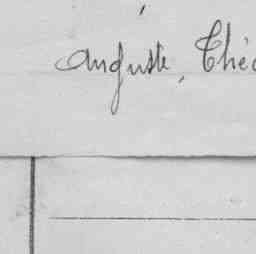 Auguste, Théo